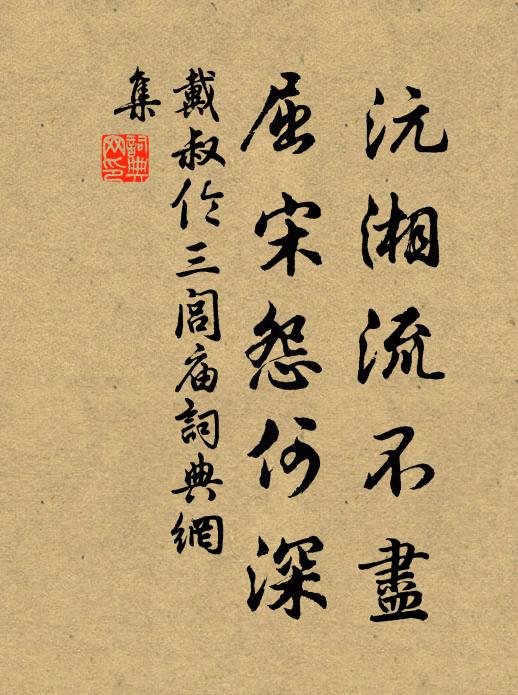 沅湘流不盡
屈宋怨何深
戴叔伦三閭庙詞典網
集
詞典
网印